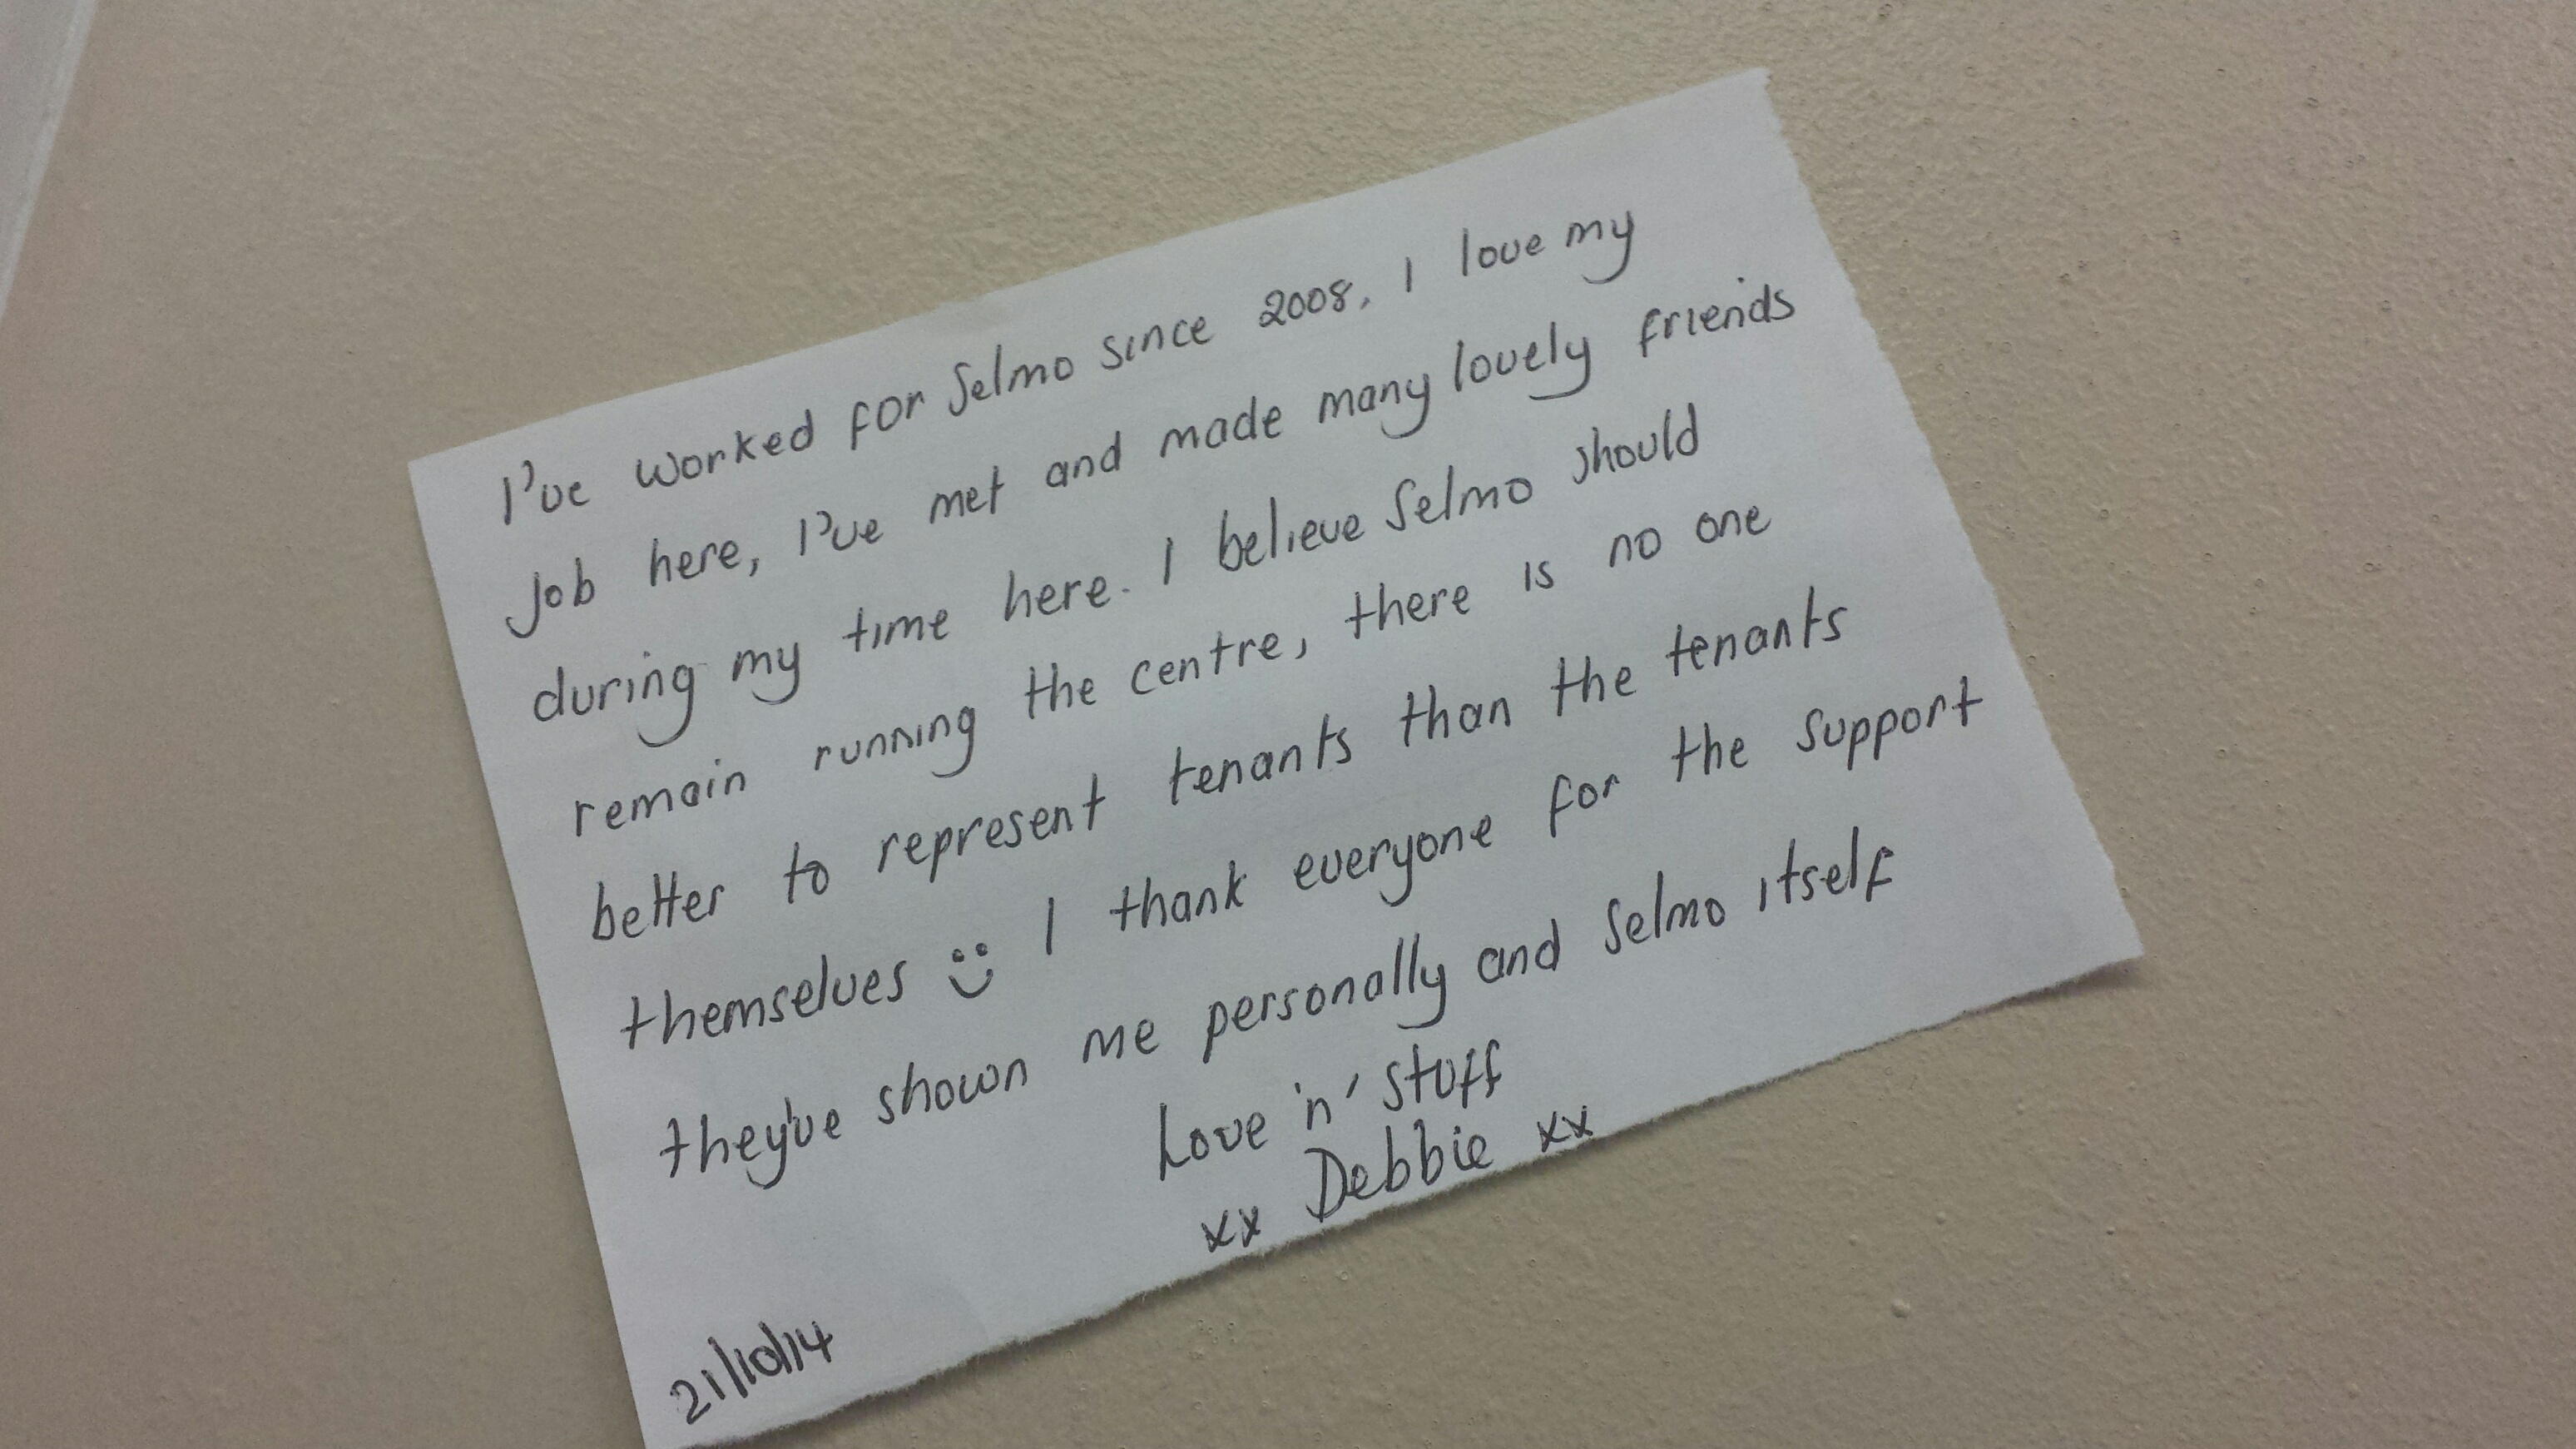 I've worked for Selmo since 2008. I love my
Job here, I've met and made many lovely friends
during my time here. I believe Selmo should
remain running the centre, there is no one
better to represent tenants than the tenants
themselves :) I thank everyone for the support
they've shown me personally and Selmo itself
Love 'n' Stuff
xx Debbie xx
21/10/14